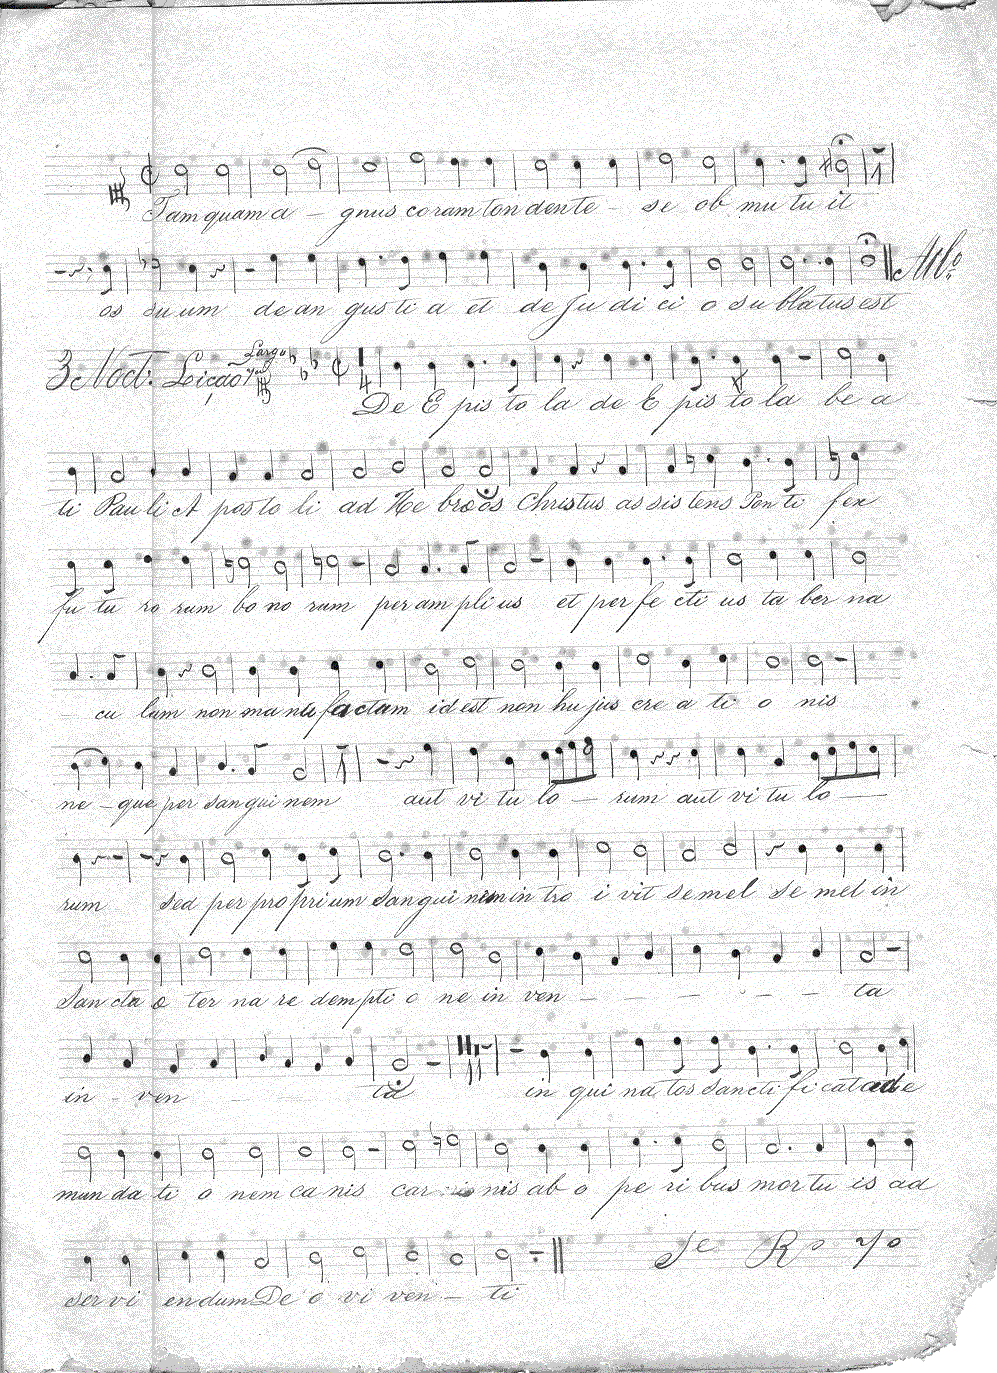 Tam quam a - gnus coram tondente - se ob mu tu it
os su um de an gus ti a et de Ju di ci o su blatus est
3 Noct. Lição 7 Largo
De E pis to la de E pis to la be a
ti Pau li A pos to li ad He bre os Christus as sis tens Pon ti fex
fu tu ro rum bo no rum per am pli us et per fe cti us ta ber na
cu lum non ma nu factam id est non hu jus cre a ti o nis
ne - que per san gui nem aut vi tu lo - rum aut vi tu lo -
rum sed per pro pri um san gui nem in tro i vit se mel se mel in
San cta e ter na re dempti o ne in ven - - - - - - ta
in - ven - - - ta in qui na tos sancti fi cat ad e
mun da ti o nem ca nis car nis ab o pe ri bus mor tu is ad
ser vi endum De o vi ven - ti